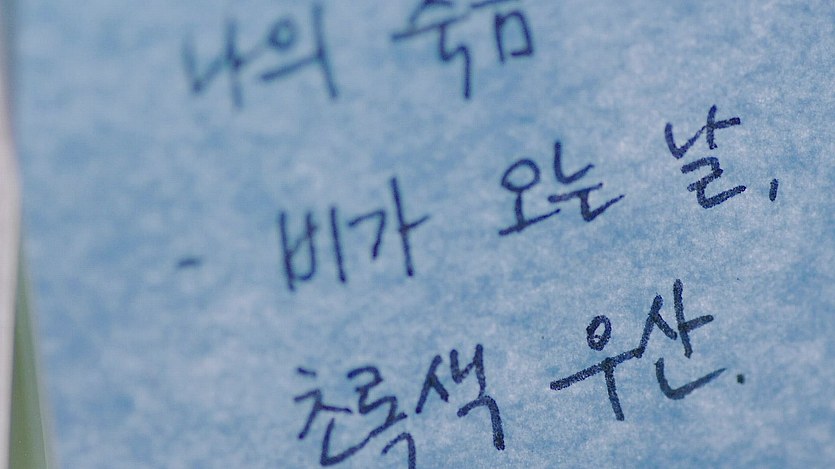 나의 죽음
- 비가 오는 날,
초록색 우산.